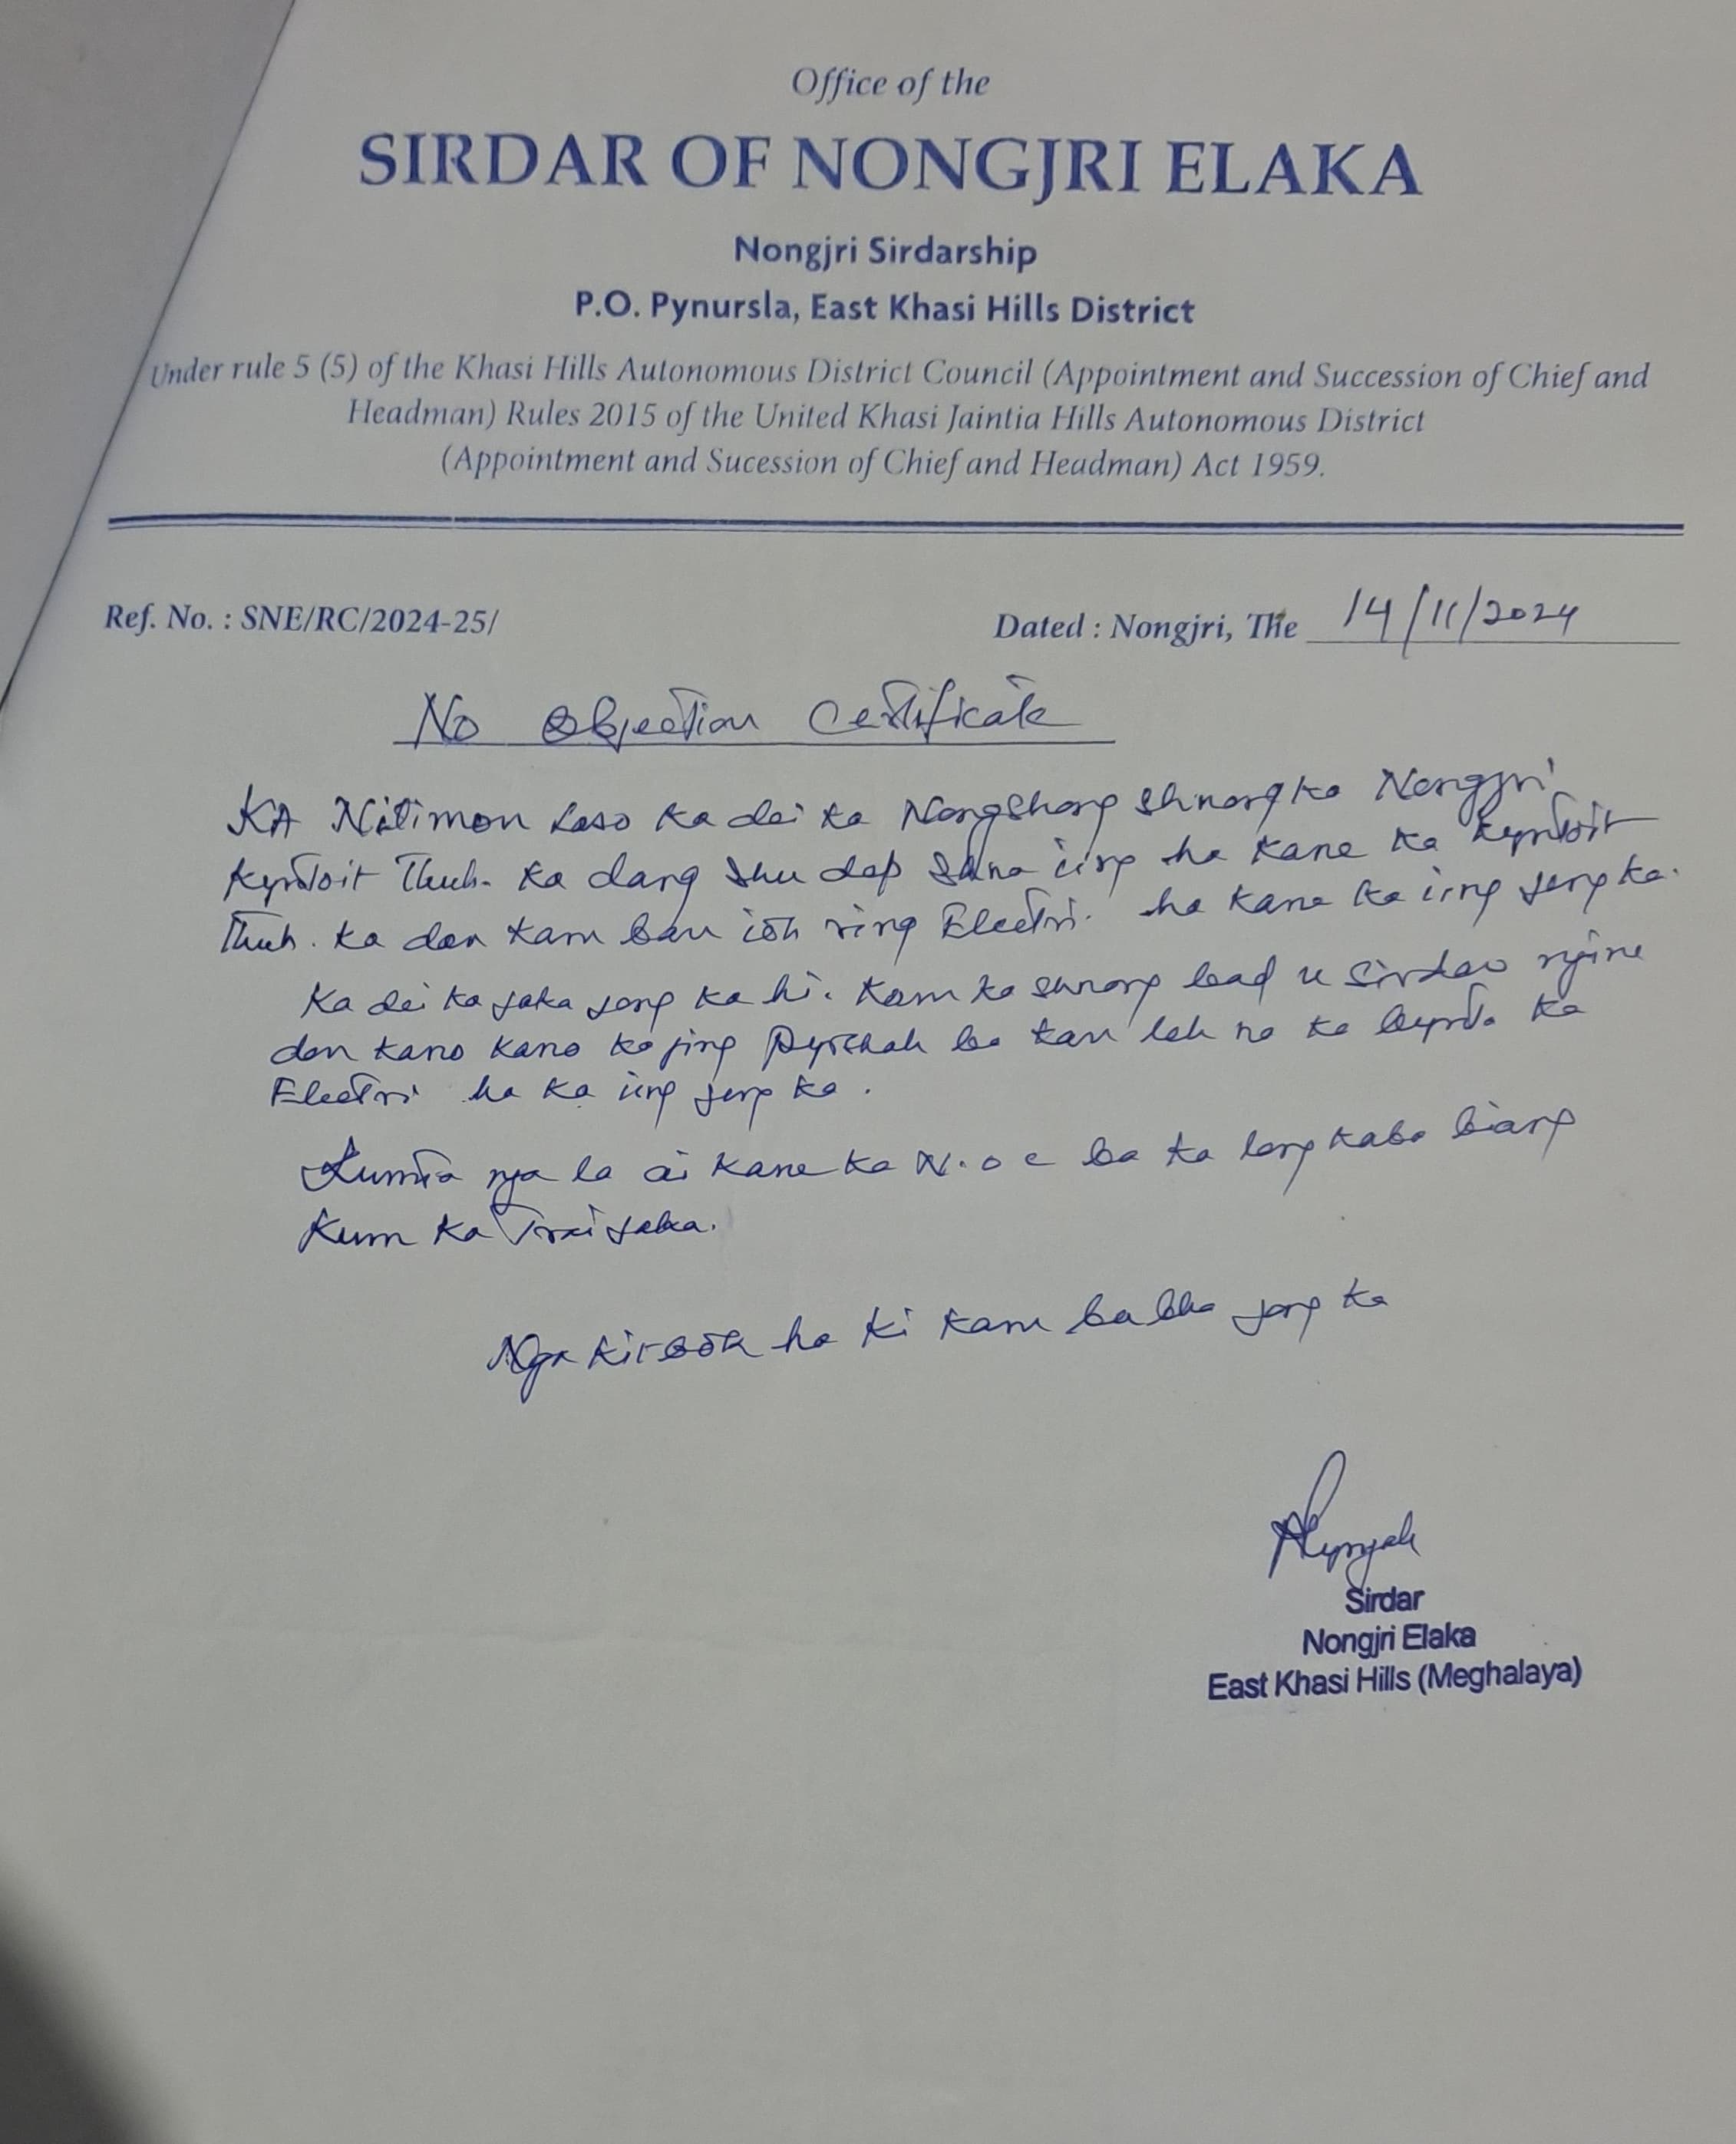 Office of the
SIRDAR OF NONGJRI ELAKA
Nongjri Sirdarship
P.O. Pynursla, East Khasi Hills District
Under rule 5 (5) of the Khasi Hills Autonomous District Council (Appointment and Succession of Chief and
Headman) Rules 2015 of the United Khasi Jaintia Hills Autonomous District
(Appointment and Sucession of Chief and Headman) Act 1959.
Ref. No. : SNE/RC/2024-25/ Dated : Nongjri, The 14/11/2024
No Objection Certificate
KA Nitimon ka dei ka Nongshong shnong ka Nongjri
Kyndoit Thuh. Ka dang shu dep shna iing ha kane ka Kyndoit
Thuh. Ka don kam ban ioh ring Electri. ha kane ka iing jong ka.
Ka dei ka jaka jong ka hi. Kam ka shnong bad u Sirdar ngim
don kano kano ka jing Pyrshah ba kan leh na ka bynta ka
Electri ha ka iing jong ka.
Kumta nga la ai kane ka N.o c ba ka long kaba biang
Kum ka Trai jaka.
Nga kitbok ha ki kam babha jong ka
Sirdar
Nongjri Elaka
East Khasi Hills (Meghalaya)